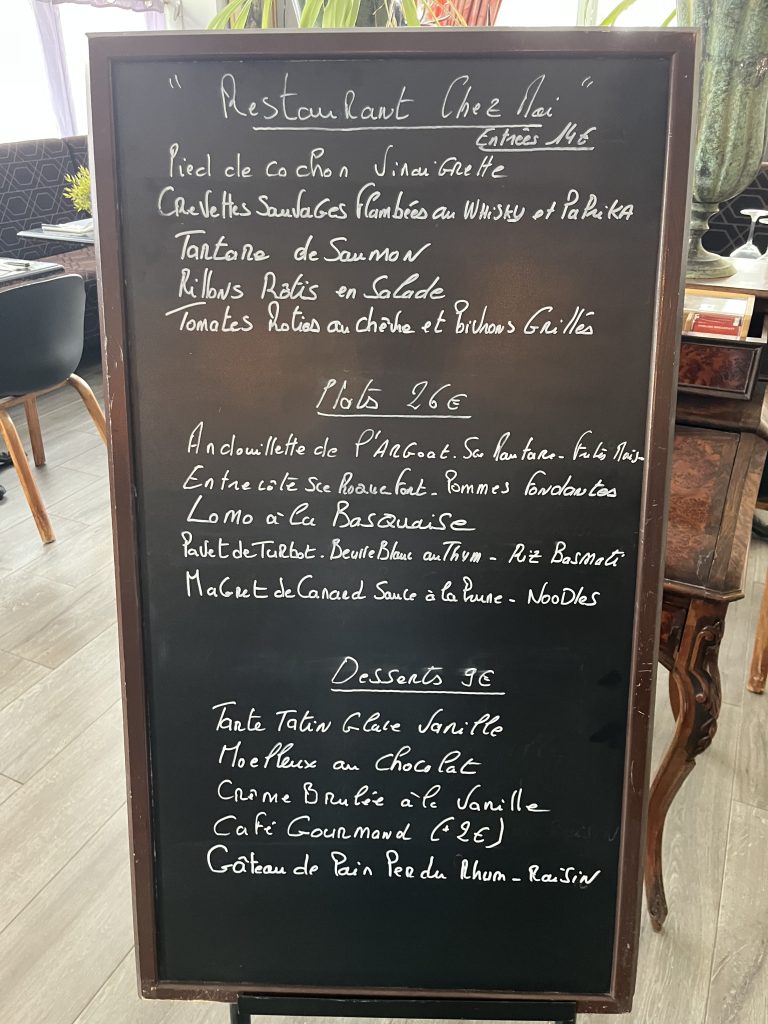 " Restaurant Chez Moi "
Entrées 14€
Pied de cochon Vinaigrette
Crevettes Sauvages Flambées au Whisky et Paprika
Tartare de Saumon
Rillons Rôtis en Salade
Tomates Roties au chèvre et Poivrons Grillés
Plats 26€
Andouillette de l'Argoat. Sce Moutarde - Frites Maison
Entrecôte Sce Roquefort - Pommes fondantes
Lomo à la Basquaise
Pavet de Turbot. Beurre Blanc au Thym - Riz Basmati
Magret de Canard Sauce à la Prune - Noodles
Desserts 9€
Tarte Tatin Glace Vanille
Moelleux au Chocolat
Crème Brulée à la Vanille
Café Gourmand (+2€)
Gâteau de Pain Perdu Rhum - Raisin